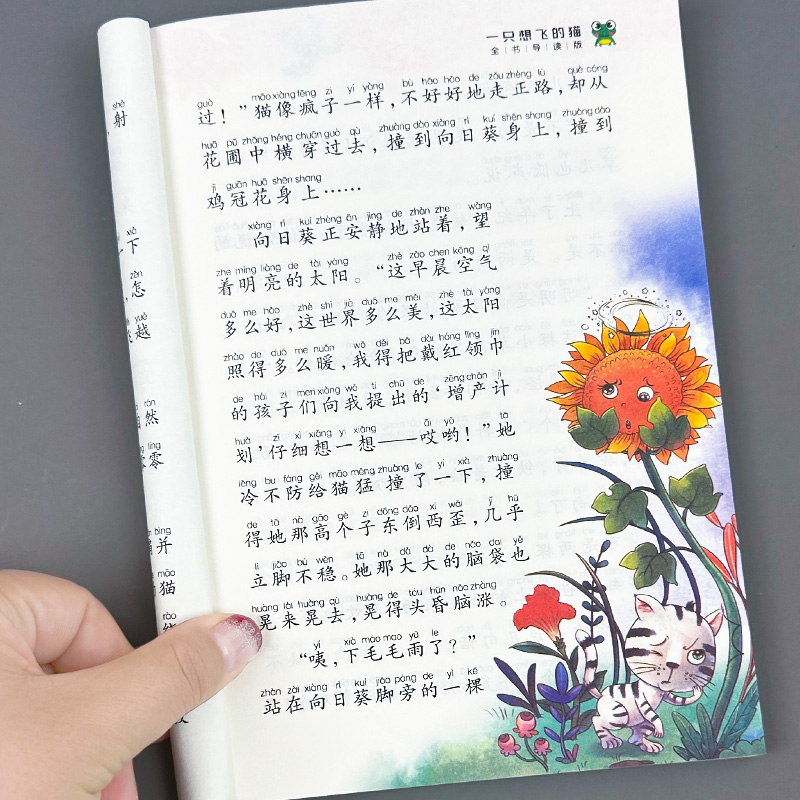 一只想飞的猫
全书导读版
guò māo xiàng fēng zi yí yàng bù hǎo hǎo de zǒu zhèng lù què cóng
过！”猫像疯子一样，不好好地走正路，却从
huā pǔ zhōng héng chuān guò qù zhuàng dào xiàng rì kuí shēn shang zhuàng dào
花圃中横穿过去，撞到向日葵身上，撞到
jī guān huā shēn shang
鸡冠花身上……
xiàng rì kuí zhèng ān jìng de zhàn zhe wàng
向日葵正安静地站着，望
zhe míng liàng de tài yáng zhè zǎo chen kōng qì
着明亮的太阳。“这早晨空气
duō me hǎo zhè shì jiè duō me měi zhè tài yáng
多么好，这世界多么美，这太阳
zhào de duō me nuǎn wǒ děi bǎ dài hóng lǐng jīn
照得多么暖，我得把戴红领巾
de hái zi men xiàng wǒ tí chū de zēng chǎn jì
的孩子们向我提出的‘增产计
huà zǐ xì xiǎng yi xiǎng āi yō tā
划’仔细想一想——哎哟！”她
lěng bu fáng gěi māo měng zhuàng le yí xià zhuàng
冷不防给猫猛 撞了一下，撞
de tā nà gāo gè zi dōng dǎo xī wāi jī hū
得她那高个子东倒西歪，几乎
lì jiǎo bù wěn tā nà dà dà de nǎo dai yě
立脚不稳。她那大大的脑袋也
huàng lái huàng qù huàng de tóu hūn nǎo zhàng
晃来晃去，晃得头昏脑涨。
yí xià máo mao yǔ le
“咦，下毛毛雨了？”
zhàn zài xiàng rì kuí jiǎo páng de yì kē
站在向日葵脚旁的一棵
shè
射
xià
下
zěn
怎
yuè
越
rán
然
líng
零
bìng
并
māo
猫